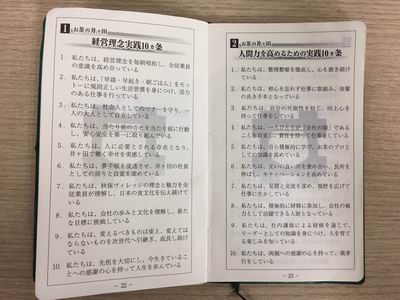 1 お茶の井ヶ田
経営理念実践10ヵ条
1. 私たちは、経営理念を毎朝唱和し、全従業員
の意識を高め合っている
2. 私たちは、「早寝・早起き・朝ごはん」をモッ
トーに規則正しい生活習慣を身につけ、活力
のある仕事を行っている
3. 私たちは、社会人としてのマナーを守り、一
人の大人として自立している
4. 私たちは、当たり前のことを当たり前に行動
し、安心安全を第一に取り組んでいる
5. 私たちは、人に必要とされる存在となり、
井ヶ田で働く幸せを実感している
6. 私たちは、夢手帳を活用させ、井ヶ田の社員
としての誇りと自覚を深めている
7. 私たちは、秋保ヴィレッジの理念と魅力を全
従業員が理解し、日本の食文化を伝え続けて
いる
8. 私たちは、会社の歩みと食文化を理解し、新た
な目標に挑戦している
9. 私たちは、変えるべきものは変え、変えては
ならないものを次世代へ引継ぎ、成長し続け
ている
10. 私たちは、先祖を大切にし、今生きているこ
とへの感謝の心を持って人生を歩んている
– 22 –
2 お茶の井ヶ田
人間力を高めるための実践10ヵ条
1. 私たちは、整理整頓を徹底し、心も磨き続け
ている
2. 私たちは、初心を忘れず仕事に取組み、後輩
の良き手本となっている
3. 私たちは、自分の可能性を信じ、向上心を持
って仕事をしている
4. 私たちは、一人ひとりが『会社の顔』である
ことを自覚し、責任を持って仕事をしている
5. 私たちは、自ら積極的に学び、お茶のプロと
しての知識を高めている
6. 私たちは、互いの良い所を褒め合い、長所を
伸ばし、モチベーションを高めている
7. 私たちは、見聞と交流を深め、視野を広げて
仕事に生かしている
8. 私たちは、積極的に研修に参加し、会社の戦
力として活躍できる人財となっている
9. 私たちは、社内講師による研修を通じて、
リーダーとしての知識を身につけ、人を育て
る楽しみを知っている
10. 私たちは、両親への感謝の心を持って、親孝
行をしている
– 23 –